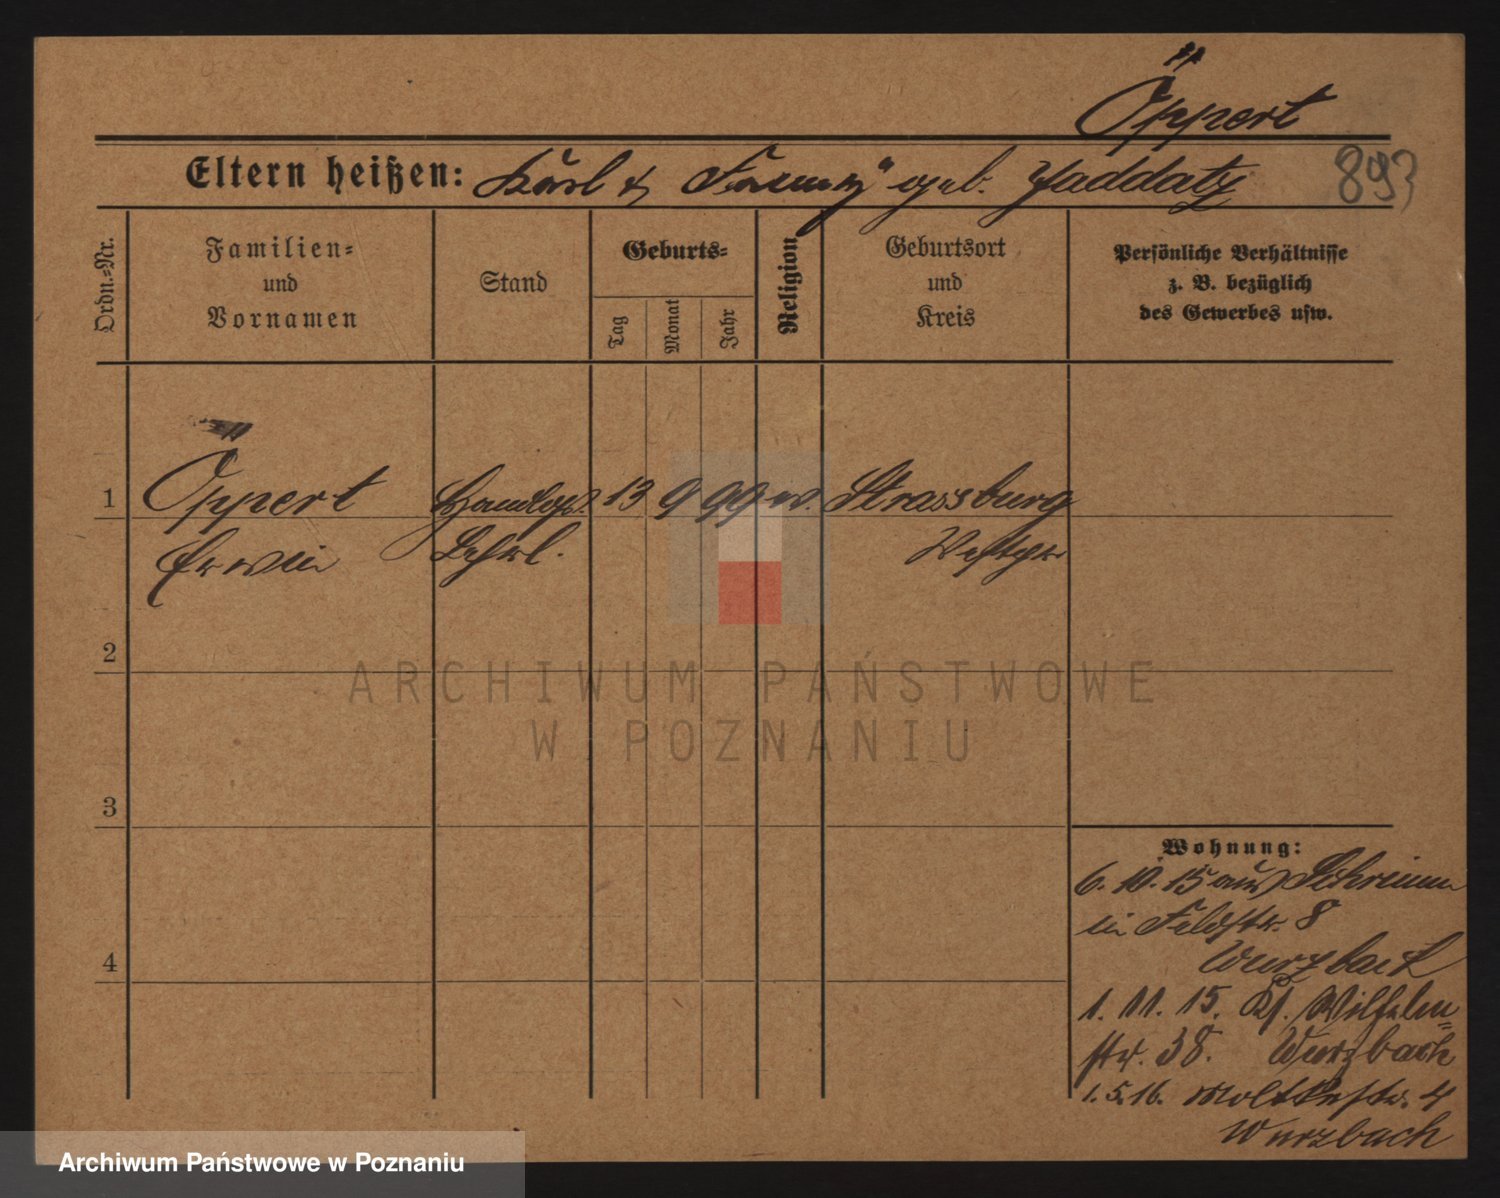 Öppert
Eltern heißen: Karl & Fanny geb. Jaddatz 893
Ordn.=Nr.
Familien=
und
Vornamen
Stand
Geburts=
Tag
Monat
Jahr
Religion
Geburtsort
und
Kreis
Persönliche Verhältnisse
z. B. bezüglich
des Gewerbes usw.
1 Öppert Handlgs. 13 9 99 Strassburg
Erwin Lehrl. Westpr.
2
3
4
Wohnung:
6. 10. 15 aus Schrimm
in Feldstr. 8
Wurzbach
1. 11. 15. Kl. Wilhelm=
str. 38. Wurzbach
1. 5. 16. Moltkestr. 4
Wurzbach
ARCHIWUM PAŃSTWOWE
W POZNANIU
Archiwum Państwowe w Poznaniu